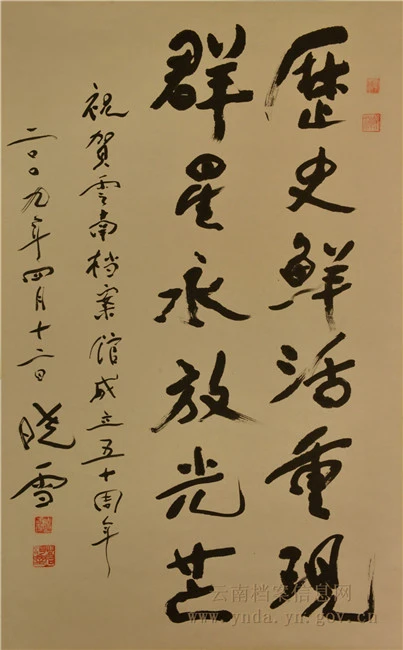 歷史鮮活重現
群星永放光芒
祝贺雲南档案馆成立五十周年
二〇〇九年四月十二日
晓雪
云南档案信息网
www.ynda.yn.gov.cn